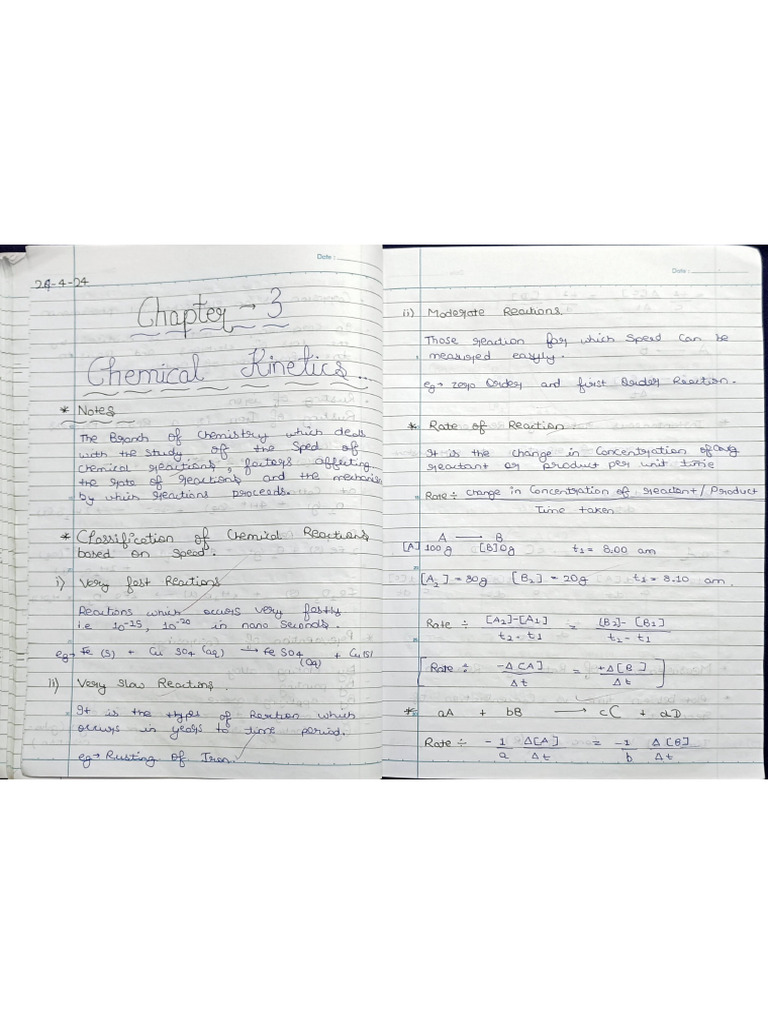 Date :
24-4-24
Chapter → 3
Chemical Kinetics...
* Notes
The Branch of Chemistry which deals
with the study off the Sped of
chemical reactions, factors affecting
the rate of reactions and the mechanism
by which reactions proceeds.
* Classification of Chemical Reactions
based on speed.
i) Very fast Reactions
Reactions which occurs very fastly
i.e 10-15, 10-20 in nano Seconds.
eg→ Fe (s) + Cu SO4 (aq) → Fe SO4 (aq) + Cu(s)
ii) Very slow Reactions.
It is the types of Reaction which
occurs in years to time period.
eg→ Rusting of Iron.
Date :
ii) Moderate Reactions
Those reaction for which Speed can be
measured easyly.
eg→ zero Order and first Order Reaction.
* Rate of Reaction
It is the change in Concentration of
reactant or product per unit time
Rate ÷ change in Concentration of reactant / Product
Time taken
A → B
[A] 100g [B] 0g t1 = 8.00 am
[A2] = 80g [B2] = 20g t1 = 8.10 am.
Rate ÷ [A2]-[A1] / t2-t1 = [B2]-[B1] / t2-t1
[Rate ÷ -Δ[A] / Δt = +Δ[B] / Δt]
* aA + bB → cC + dD
Rate ÷ -1/a Δ[A]/Δt = -1/b Δ[B]/Δt